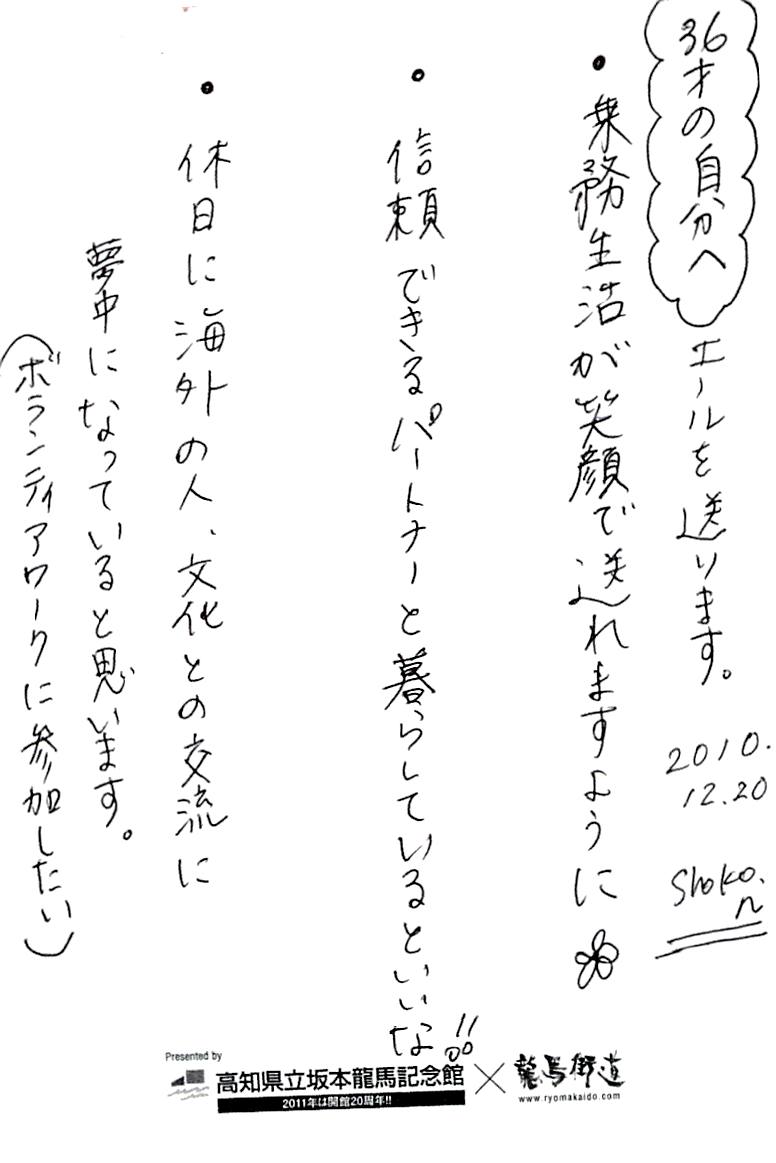 36才の自分へ エールを送ります。
2010.
12.20
Shoko.
n
• 乗務生活が笑顔で送れますように
• 信頼できるパートナーと暮らしているといいな!!
• 休日に海外の人、文化との交流に
夢中になっていると思います。
(ボランティアワークに参加したい)
Presented by
高知県立坂本龍馬記念館 × 龍馬街道
2011年は開館20周年!!
www.ryomakaido.com